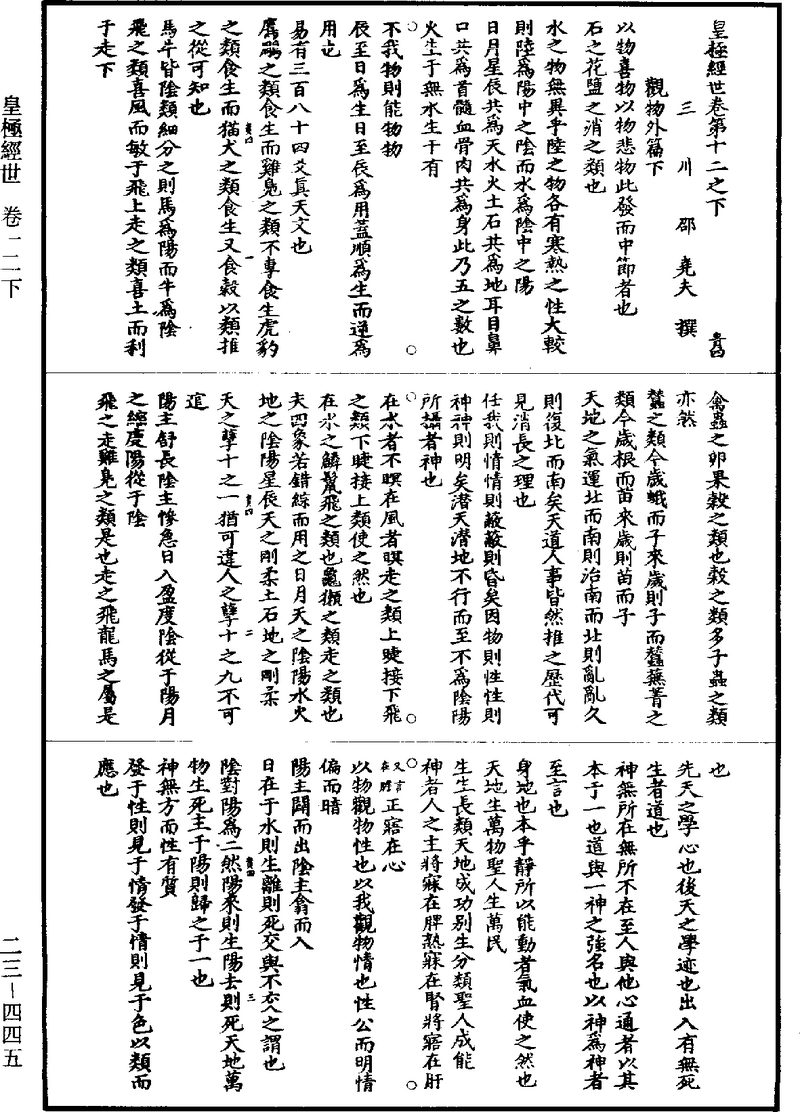 皇極經世 卷一二下
二三－四四五
皇極經世卷第十二之下
貴四
三川邵堯夫撰
觀物外篇下
以物喜物以物悲物此發而中節者也
石之花鹽之消之類也
水之物無異乎陸之物各有寒熱之性大較
則陸爲陽中之陰而水爲陰中之陽
日月星辰共爲天水火土石共爲地耳目鼻
口共爲首髓血骨肉共爲身此乃五之數也
火生于無水生于有
不我物則能物物
辰至日爲生日至辰爲用蓋順爲生而逆爲
用也
易有三百八十四爻真天文也
鷹鸇之類食生而雞鳧之類不專食生虎豹
之類食生而猫犬之類食生又食穀以類推
之從可知也
馬牛皆陰類細分之則馬爲陽而牛爲陰
飛之類喜風而敏于飛上走之類喜土而利
于走下
禽蟲之卵果穀之類也穀之類多子蟲之類
亦然
蠶之類今歲蛾而子來歲則子而蠶蕪菁之
類今歲根而苗來歲則苗而子
天地之氣運北而南則治南而北則亂亂久
則復北而南矣天道人事皆然推之歷代可
見消長之理也
任我則情情則蔽蔽則昏矣因物則性性則
神神則明矣潛天潛地不行而至不爲陰陽
所攝者神也
在水者不瞑在風者瞑走之類上睫接下飛
之類下睫接上類使之然也
在水之鱗鬛飛之類也龜獺之類走之類也
夫四象若錯綜而用之日月天之陰陽水火
地之陰陽星辰天之剛柔土石地之剛柔
天之孽十之一猶可違人之孽十之九不可
逭
陽主舒長陰主慘急日入盈度陰從于陽月
之縮度陽從于陰
飛之走雞鳧之類是也走之飛龍馬之屬是
也
先天之學心也後天之學迹也出入有無死
生者道也
神無所在無所不在至人與他心通者以其
本于一也道與一神之強名也以神爲神者
至言也
身地也本乎靜所以能動者氣血使之然也
天地生萬物聖人生萬民
生生長類天地成功别生分類聖人成能
神者人之主將寐在脾熟寐在腎將寤在肝
又言在膽正寤在心
以物觀物性也以我觀物情也性公而明情
偏而暗
陽主闢而出陰主翕而入
日在于水則生離則死交與不交之謂也
陰對陽爲二然陽來則生陽去則死天地萬
物生死主于陽則歸之于一也
神無方而性有質
發于性則見于情發于情則見于色以類而
應也